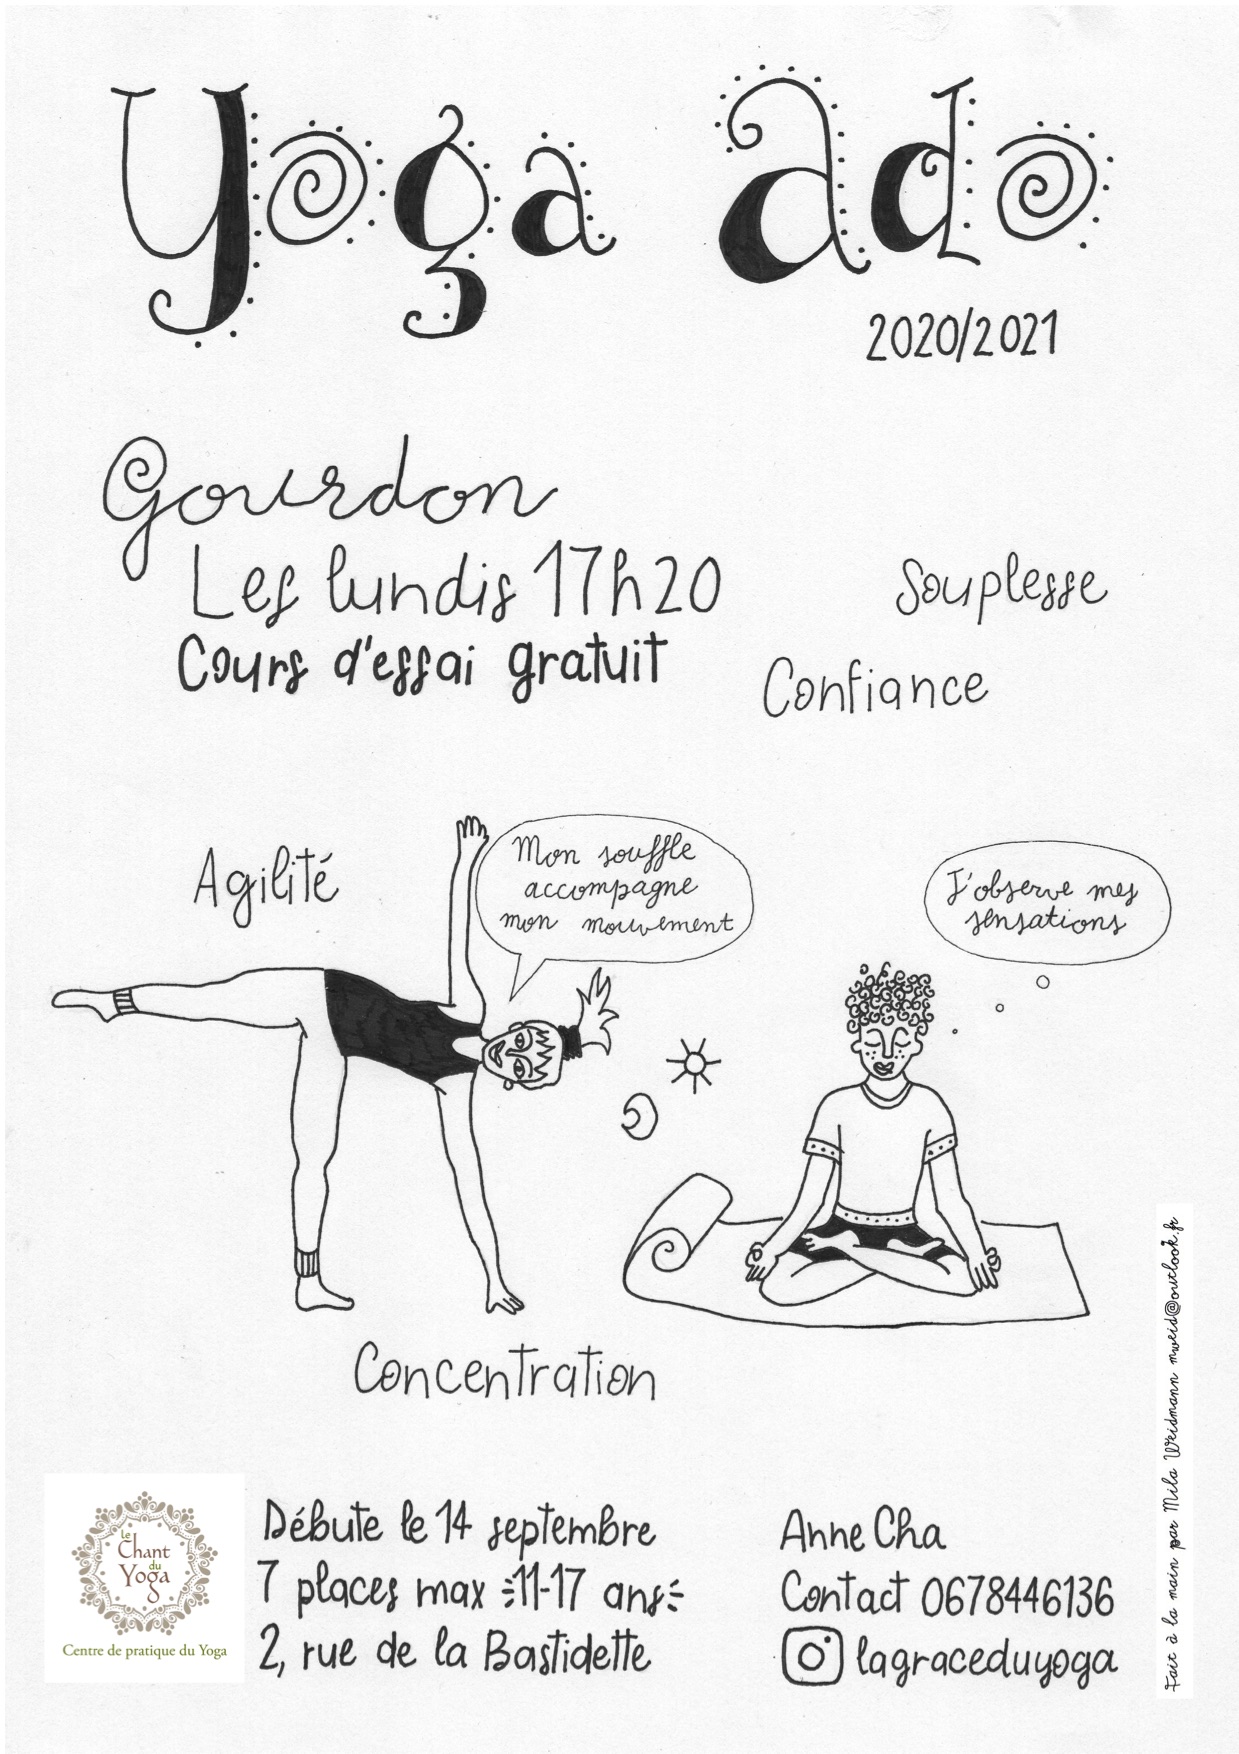 Yoga Ado
2020/2021
Gourdon
Les lundis 17h20
Cours d'essai gratuit
Souplesse
Confiance
Agilité
Mon souffle
accompagne
mon mouvement
J'observe mes
sensations
Concentration
le
Chant
du
Yoga
Centre de pratique du Yoga
Débute le 14 septembre
7 places max 11-17 ans
2, rue de la Bastidette
Anne Cha
Contact 0678446136
lagraceduyoga
Fait à la main par Mila Weidmann mweid@outlook.fr